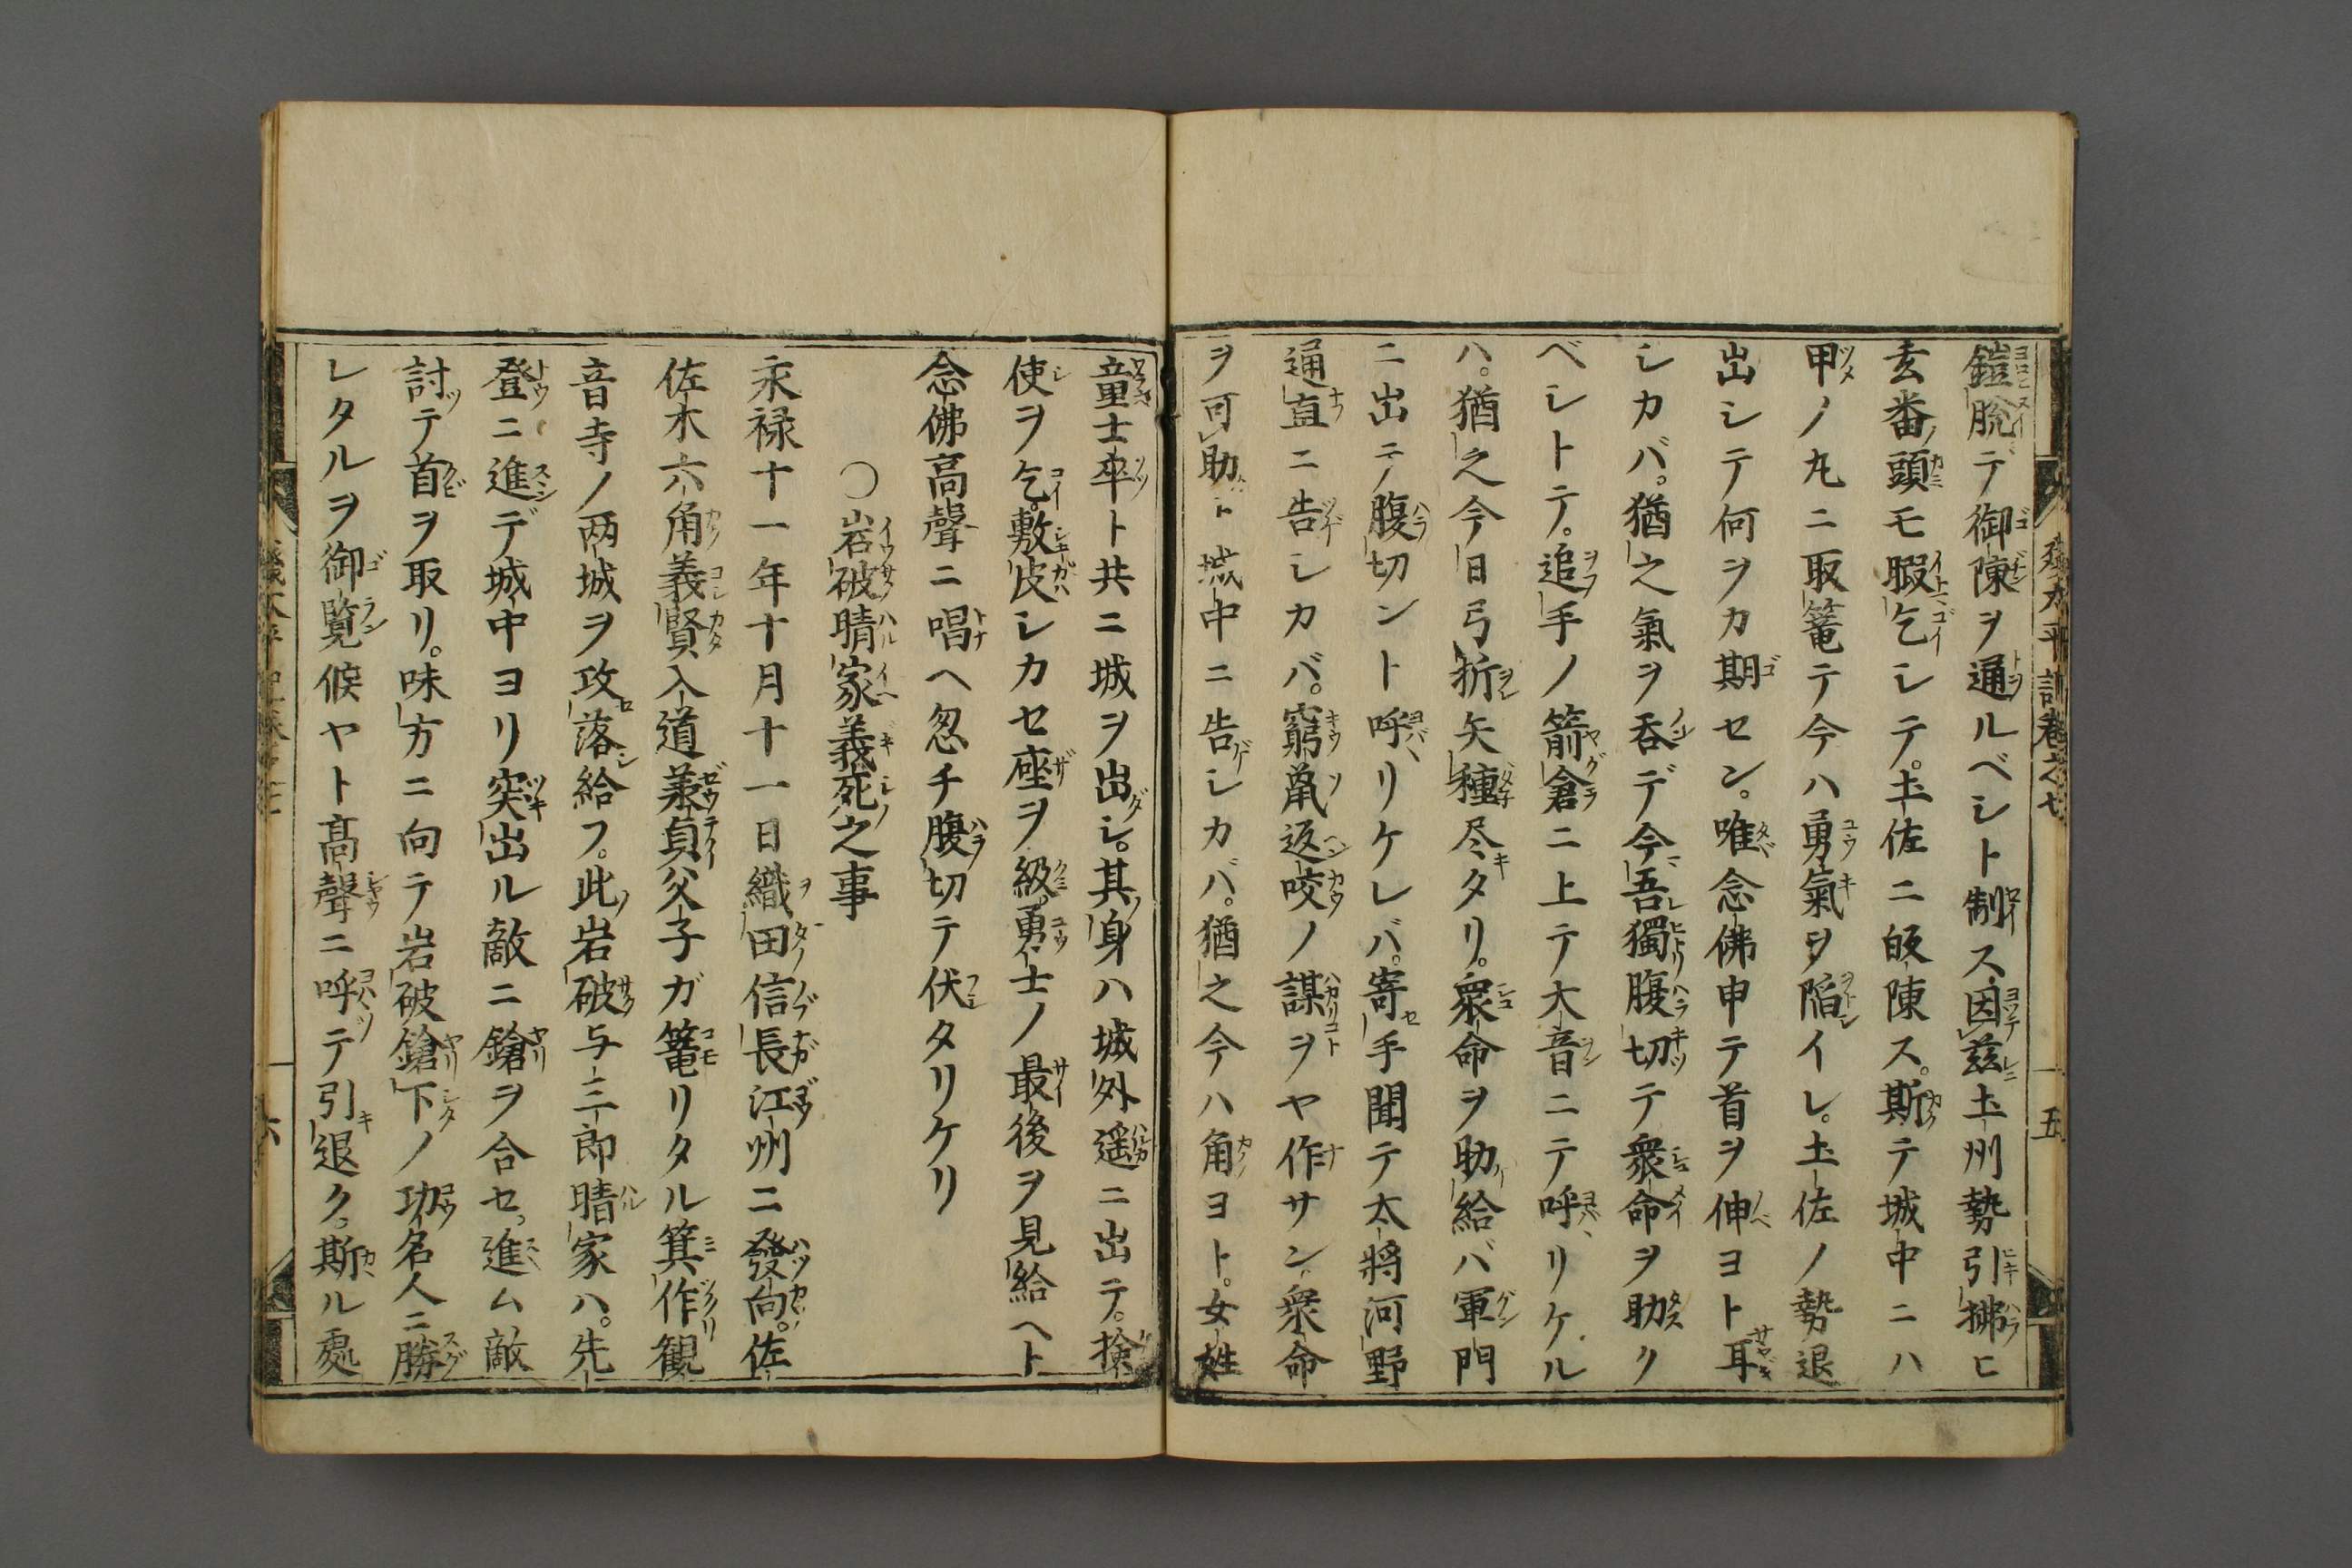 鎧脱デ御陳ヲ通ルベシト制ス因茲土州勢引拂ヒ
玄番頭モ暇乞シテ。土佐ニ皈陳ス。斯テ城中ニハ
甲ノ丸ニ取篭テ今ハ勇氣ヲ陥イレ。土佐ノ勢退
出シテ何ヲカ期セン。唯念佛申テ首ヲ伸ヨト耳
シカバ。猶之氣ヲ呑デ今吾獨腹切テ衆命ヲ助ク
ベシトテ。追手ノ箭倉ニ上テ大音ニテ呼リケル
ハ。猶之今日弓折矢種尽タリ。衆命ヲ助給バ軍門
ニ出テ腹切ント呼リケレバ。寄手聞テ太将河野
通直ニ告シカバ。窮鼡返咬ノ謀ヲヤ作サン衆命
ヲ可助ト城中ニ告シカバ。猶之今ハ角ヨト。女姓
童士卒ト共ニ城ヲ出シ。其身ハ城外遥ニ出テ。撿
使ヲ乞。敷皮シカセ座ヲ級。勇士ノ最後ヲ見給ヘト
念佛高聲ニ唱ヘ忽チ腹切テ伏タリケリ
○岩破晴家義死之事
永禄十一年十月十一日織田信長江州ニ發向。佐
佐木六角義賢入道義貞父子ガ篭リタル箕作観
音寺ノ両城ヲ攻落給フ。此岩破与三郎晴家ハ。先
登ニ進デ城中ヨリ突出ル敵ニ鎗ヲ合セ。進ム敵
討テ首ヲ取リ。味方ニ向テ岩破鎗下ノ功名人ニ勝
レタルヲ御覧候ヤト高聲ニ呼テ引退ク。斯ル處
五
六